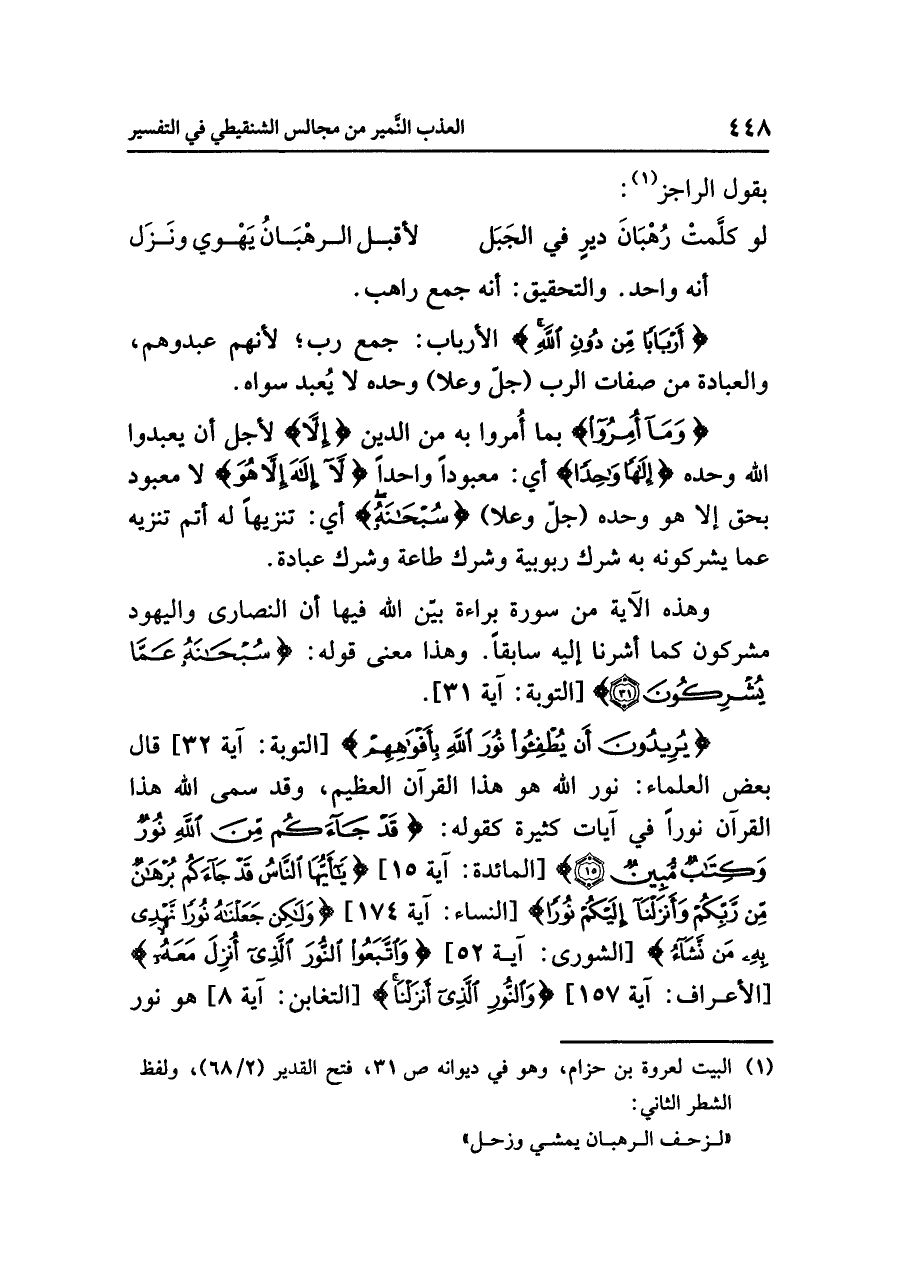 ٤٤٨ العذب النَّمير من مجالس الشنقيطي في التفسير
بقول الراجز(١):
لو كلَّمتْ رُهْبَانَ ديرٍ في الجَبَل لأقبـل الـرهْبَـانُ يَهْـوي ونَـزَل
أنه واحد. والتحقيق: أنه جمع راهب.
﴿أَرْبَابًا مِّن دُونِ ٱللَّهِ﴾ الأرباب: جمع رب؛ لأنهم عبدوهم،
والعبادة من صفات الرب (جلّ وعلا) وحده لا يُعبد سواه.
﴿وَمَآ أُمِرُوٓا۟﴾ بما أُمروا به من الدين ﴿إِلَّا﴾ لأجل أن يعبدوا
الله وحده ﴿إِلَٰهًا وَٰحِدًا﴾ أي: معبوداً واحداً ﴿لَّآ إِلَٰهَ إِلَّا هُوَ﴾ لا معبود
بحق إلا هو وحده (جلّ وعلا) ﴿سُبْحَٰنَهُۥ﴾ أي: تنزيهاً له أتم تنزيه
عما يشركونه به شرك ربوبية وشرك طاعة وشرك عبادة.
وهذه الآية من سورة براءة بيّن الله فيها أن النصارى واليهود
مشركون كما أشرنا إليه سابقاً. وهذا معنى قوله: ﴿سُبْحَٰنَهُۥ عَمَّا
يُشْرِكُونَ ٣١﴾ [التوبة: آية ٣١].
﴿يُرِيدُونَ أَن يُطْفِـُٔوا۟ نُورَ ٱللَّهِ بِأَفْوَٰهِهِمْ﴾ [التوبة: آية ٣٢] قال
بعض العلماء: نور الله هو هذا القرآن العظيم، وقد سمى الله هذا
القرآن نوراً في آيات كثيرة كقوله: ﴿قَدْ جَآءَكُم مِّنَ ٱللَّهِ نُورٌ
وَكِتَٰبٌ مُّبِينٌ ١٥﴾ [المائدة: آية ١٥] ﴿يَٰٓأَيُّهَا ٱلنَّاسُ قَدْ جَآءَكُم بُرْهَٰنٌ
مِّن رَّبِّكُمْ وَأَنزَلْنَآ إِلَيْكُمْ نُورًا﴾ [النساء: آية ١٧٤] ﴿وَلَٰكِن جَعَلْنَٰهُ نُورًا نَّهْدِى
بِهِۦ مَن نَّشَآءُ﴾ [الشورى: آيـة ٥٢] ﴿وَٱتَّبَعُوا۟ ٱلنُّورَ ٱلَّذِىٓ أُنزِلَ مَعَهُۥٓ﴾
[الأعـراف: آية ١٥٧] ﴿وَٱلنُّورِ ٱلَّذِىٓ أَنزَلْنَا﴾ [التغابن: آية ٨] هو نور
(١) البيت لعروة بن حزام، وهو في ديوانه ص ٣١، فتح القدير (٦٨/٢)، ولفظ
الشطر الثاني:
«لـزحـف الـرهبـان يمشـي وزحـل»